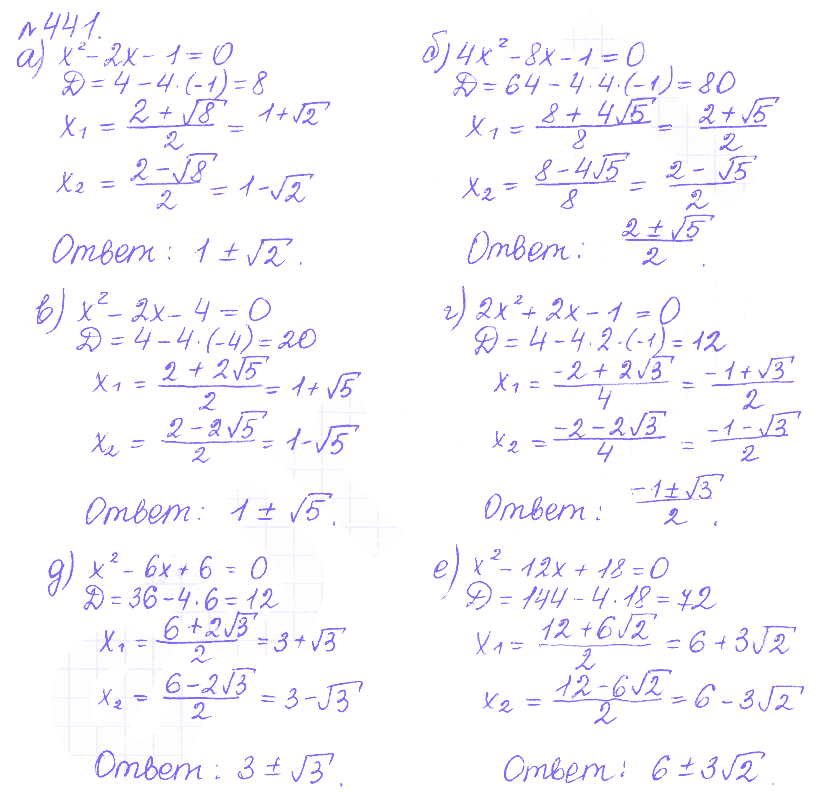 №441.
а) x² - 2x - 1 = 0
D = 4 - 4·(-1) = 8
x₁ = (2 + √8)/2 = 1 + √2
x₂ = (2 - √8)/2 = 1 - √2
Ответ: 1 ± √2.
б) 4x² - 8x - 1 = 0
D = 64 - 4·4·(-1) = 80
x₁ = (8 + 4√5)/8 = (2 + √5)/2
x₂ = (8 - 4√5)/8 = (2 - √5)/2
Ответ: (2 ± √5)/2.
в) x² - 2x - 4 = 0
D = 4 - 4·(-4) = 20
x₁ = (2 + 2√5)/2 = 1 + √5
x₂ = (2 - 2√5)/2 = 1 - √5
Ответ: 1 ± √5.
г) 2x² + 2x - 1 = 0
D = 4 - 4·2·(-1) = 12
x₁ = (-2 + 2√3)/4 = (-1 + √3)/2
x₂ = (-2 - 2√3)/4 = (-1 - √3)/2
Ответ: (-1 ± √3)/2.
д) x² - 6x + 6 = 0
D = 36 - 4·6 = 12
x₁ = (6 + 2√3)/2 = 3 + √3
x₂ = (6 - 2√3)/2 = 3 - √3
Ответ: 3 ± √3.
е) x² - 12x + 18 = 0
D = 144 - 4·18 = 72
x₁ = (12 + 6√2)/2 = 6 + 3√2
x₂ = (12 - 6√2)/2 = 6 - 3√2
Ответ: 6 ± 3√2.